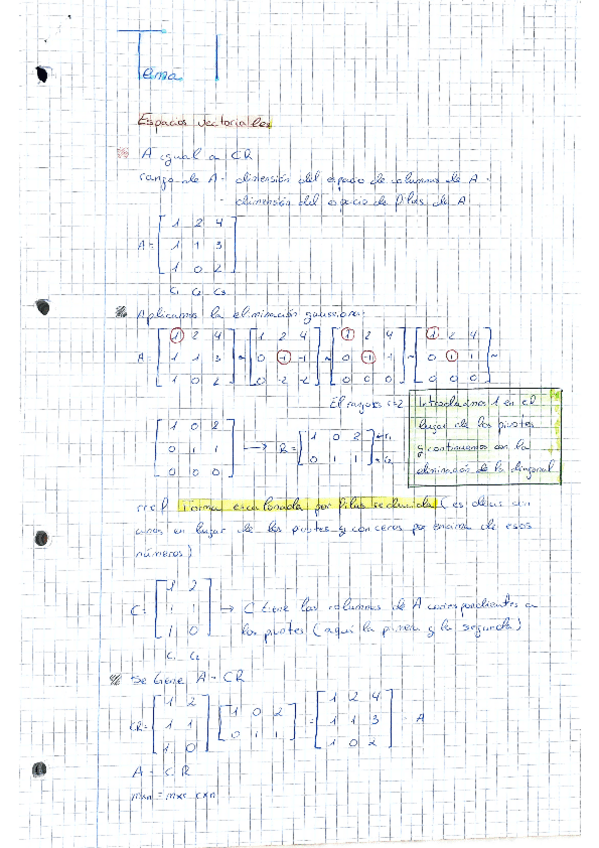 Tema 1
Espacios vectoriales
A igual a CR
rango de A = dimensión del espacio de columnas de A =
= dimensión del espacio de filas de A
A = [1 2 4
1 1 3
1 0 2]
C₁ C₂ C₃
Aplicamos la eliminación gaussiana:
A = [1 2 4 ~ [1 2 4 ~ [1 2 4 ~ [1 2 4 ~
1 1 3] 0 -1 -1] 0 -1 -1] 0 1 1]
1 0 2] 0 -2 -2] 0 0 0] 0 0 0]
El rango es r=2
Introducimos 1 en el
lugar de los pivotes
y continuamos con la
eliminación de la diagonal
[1 0 2
0 1 1
0 0 0] → R = [1 0 2
0 1 1]
rref forma escalonada por filas reducida (es decir con
unos en lugar de los pivotes y con ceros por encima de esos
números)
C = [1 2
1 1 → C tiene las columnas de A correspondientes a
1 0] los pivotes (aquí la primera y la segunda)
C₁ C₂
Se tiene A = CR
CR = [1 2
1 1
1 0] [1 0 2
0 1 1] = [1 2 4
1 1 3
1 0 2] = A
A = C R
m×n = m×r r×n